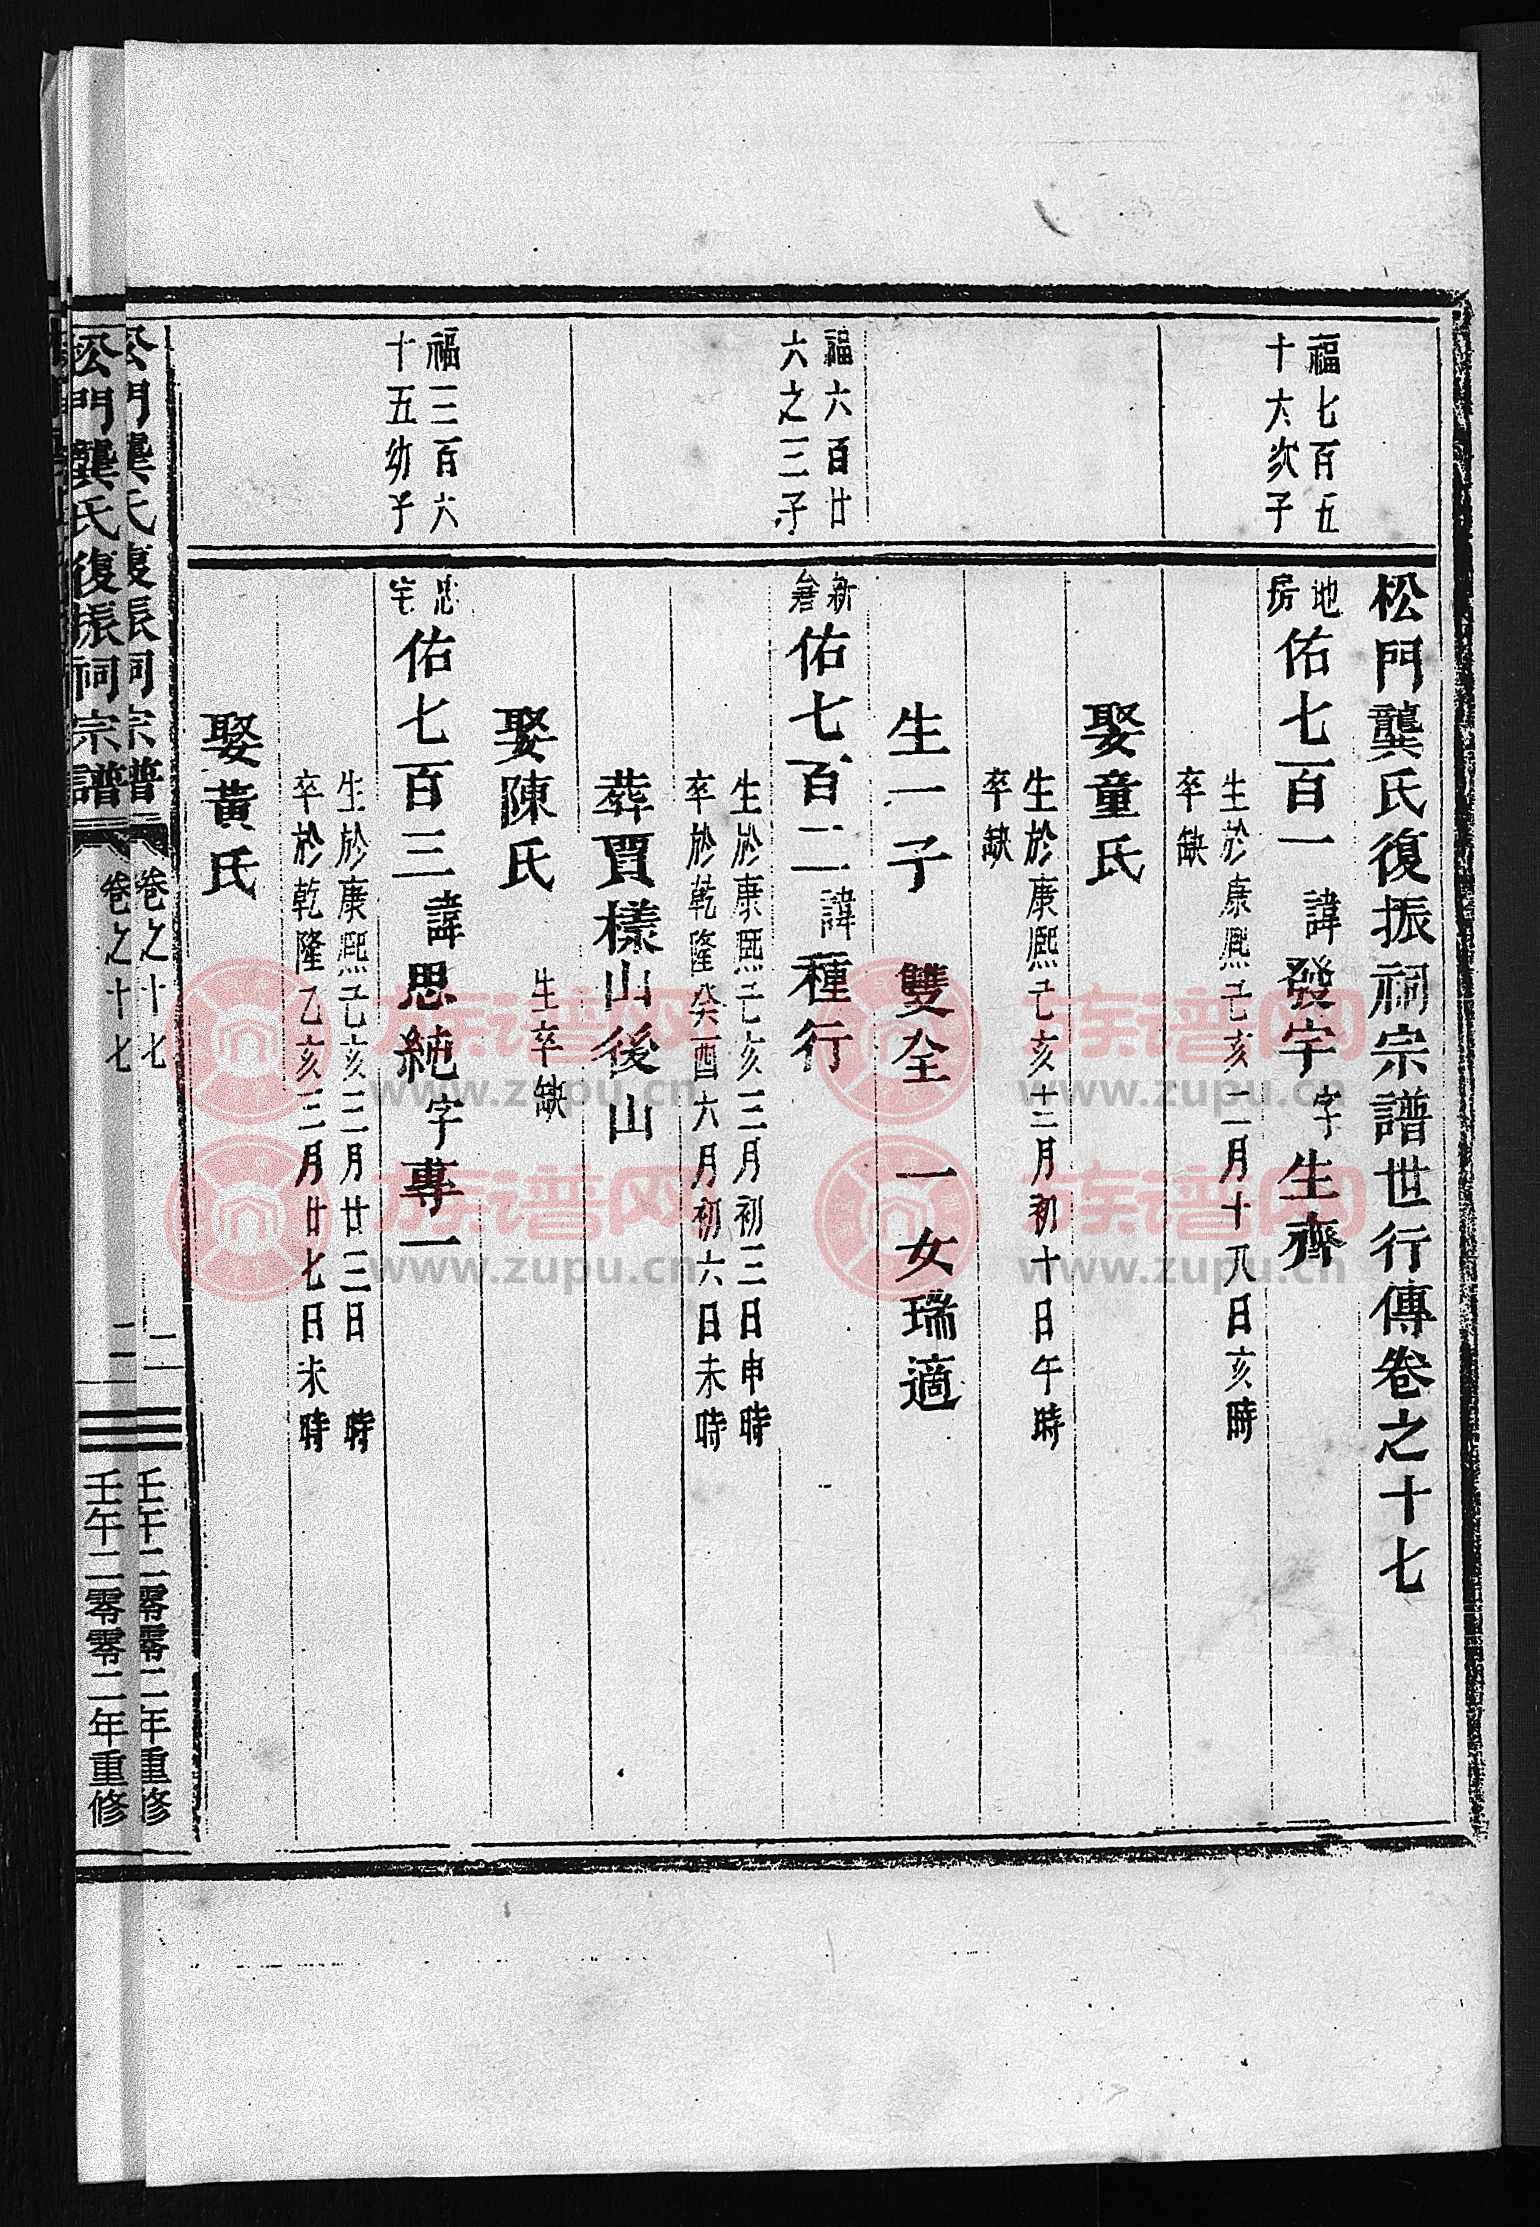 松門龔氏復振祠宗譜世行傳卷之十七
福七百五
十六次子
地房
佑七百一 諱發宇 字生齊
生於康熙己亥二月十八日亥時
卒缺
娶童氏
生於康熙己亥十二月初十日午時
卒缺
生一子 雙全 一女瑞適
福六百廿
六之三子
佑七百二 諱種行
生於康熙己亥三月初三日申時
卒於乾隆癸酉六月初六日未時
葬賈樣山後山
娶陳氏 生卒缺
福三百六
十五幼子
忠宅
佑七百三 諱思純 字專一
生於康熙己亥三月廿三日 時
卒於乾隆乙亥三月廿七日未時
娶黃氏
松門龔氏復振祠宗譜 卷之十七 二 壬午二零零二年重修
松門龔氏復振祠宗譜 卷之十七 二 壬午二零零二年重修
族谱网
www.zupu.cn
族谱网
www.zupu.cn
族谱网
www.zupu.cn
族谱网
www.zupu.cn